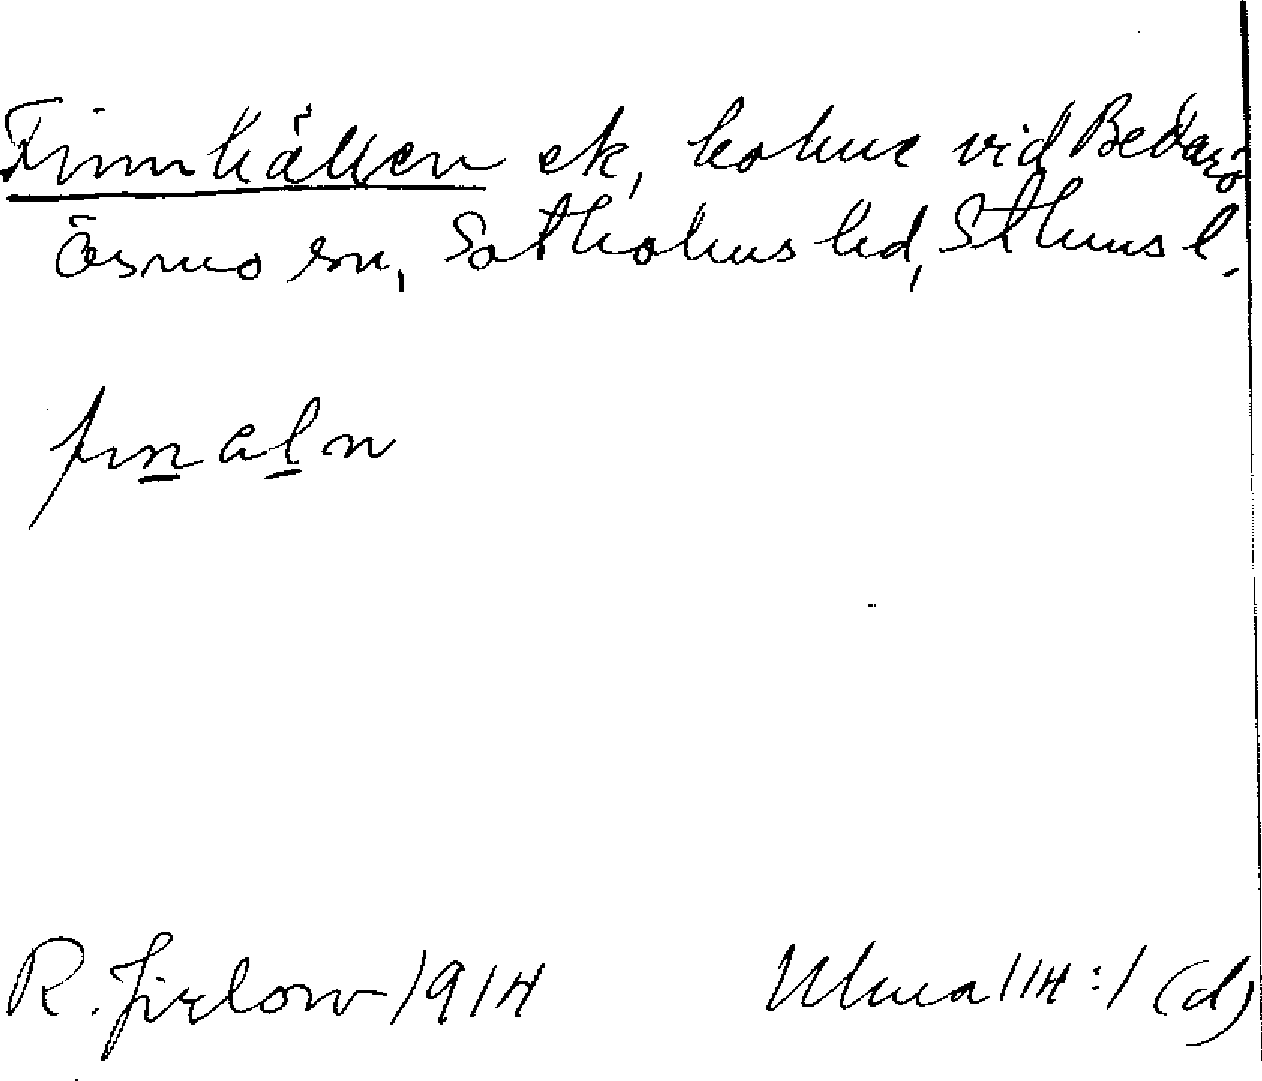 Finnhällen ek, holme vid Bedarö
Ösmo sn, Sotholms hd, Sthms l.
finaln
R. Jirlow 1914
Ulma 114:1 (d)